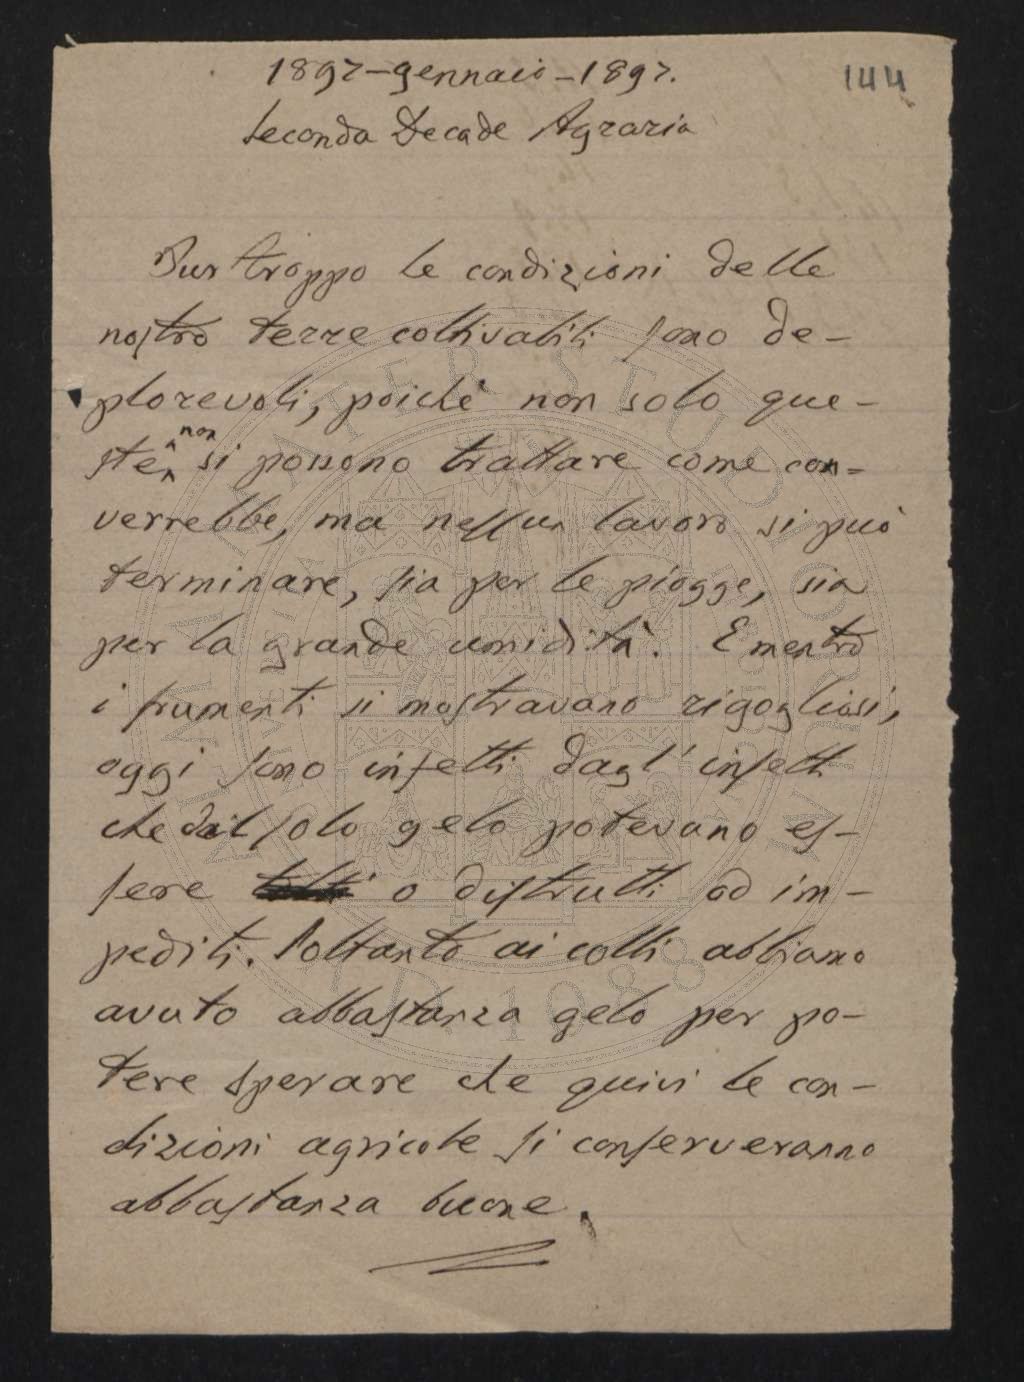 1897-gennaio-1897.
144
Seconda Decade Agraria
Pur troppo le condizioni delle
nostre terre coltivabili sono de-
plorevoli, poichè non solo que-
ste non si possono trattare come con=
verrebbe, ma nessun lavoro si può
terminare, sia per le piogge, sia
per la grande umidità. E mentre
i frumenti si mostravano rigogliosi,
oggi sono infetti dagl'insetti
che dal solo gelo potevano es-
sere o distrutti od im-
pediti. Soltanto ai colli abbiamo
avuto abbastanza gelo per po-
tere sperare che quivi le con-
dizioni agricole si conserveranno
abbastanza buone.
ALMA MATER STUDIORUM
A.D. 1088